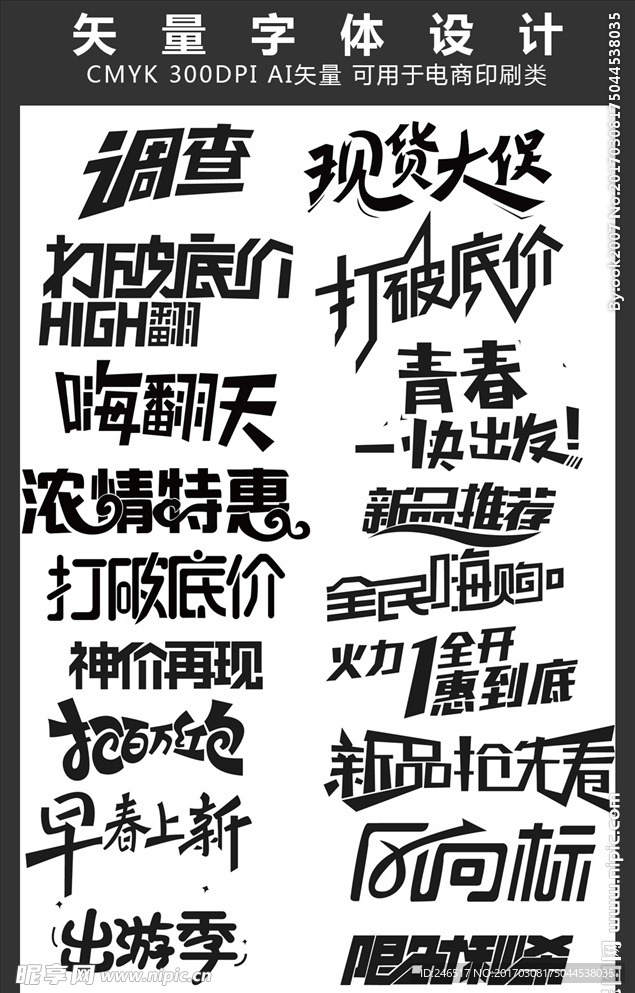 矢量字体设计
CMYK 300DPI AI矢量 可用于电商印刷类
调查
现货大促
打破底价
HIGH翻
打破底价
嗨翻天
青春
一快出发!
浓情特惠
新品推荐
打破底价
全民嗨购
神价再现
火力1全开
惠到底
抢百万红包
新品抢先看
早春上新
反向标
出游季
限时秒杀
By:ook2007 No:20170308175044538035
昵享网 www.nipic.cn
ID:246517 NO:20170308175044538035
www.nipic.com